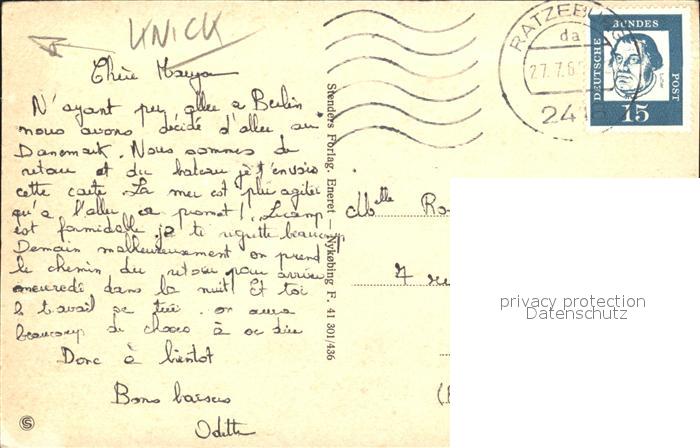 KNICK
Chère
N'ayant pu aller à Berlin
nous avons décidé d'aller au
Danemark. Nous sommes de
retour et du bateau je t'envois
cette carte. La mer est plus agitée
qu'à l'aller ça promet! Le camp
est formidable je te regrette beaucoup
Demain malheureusement on prend
le chemin du retour pour arriver
mercredi dans la nuit. Et toi
le travail se tire. on aura
beaucoup de choses à se dire
Donc à bientôt
Bons baisers
Odette
Stenders Forlag. Eneret — Nykøbing F. 41 301/436
RATZEBURG
da
27.7.6
2418
DEUTSCHE BUNDES POST
15
Mlle Ro
7 rue
privacy protection
Datenschutz